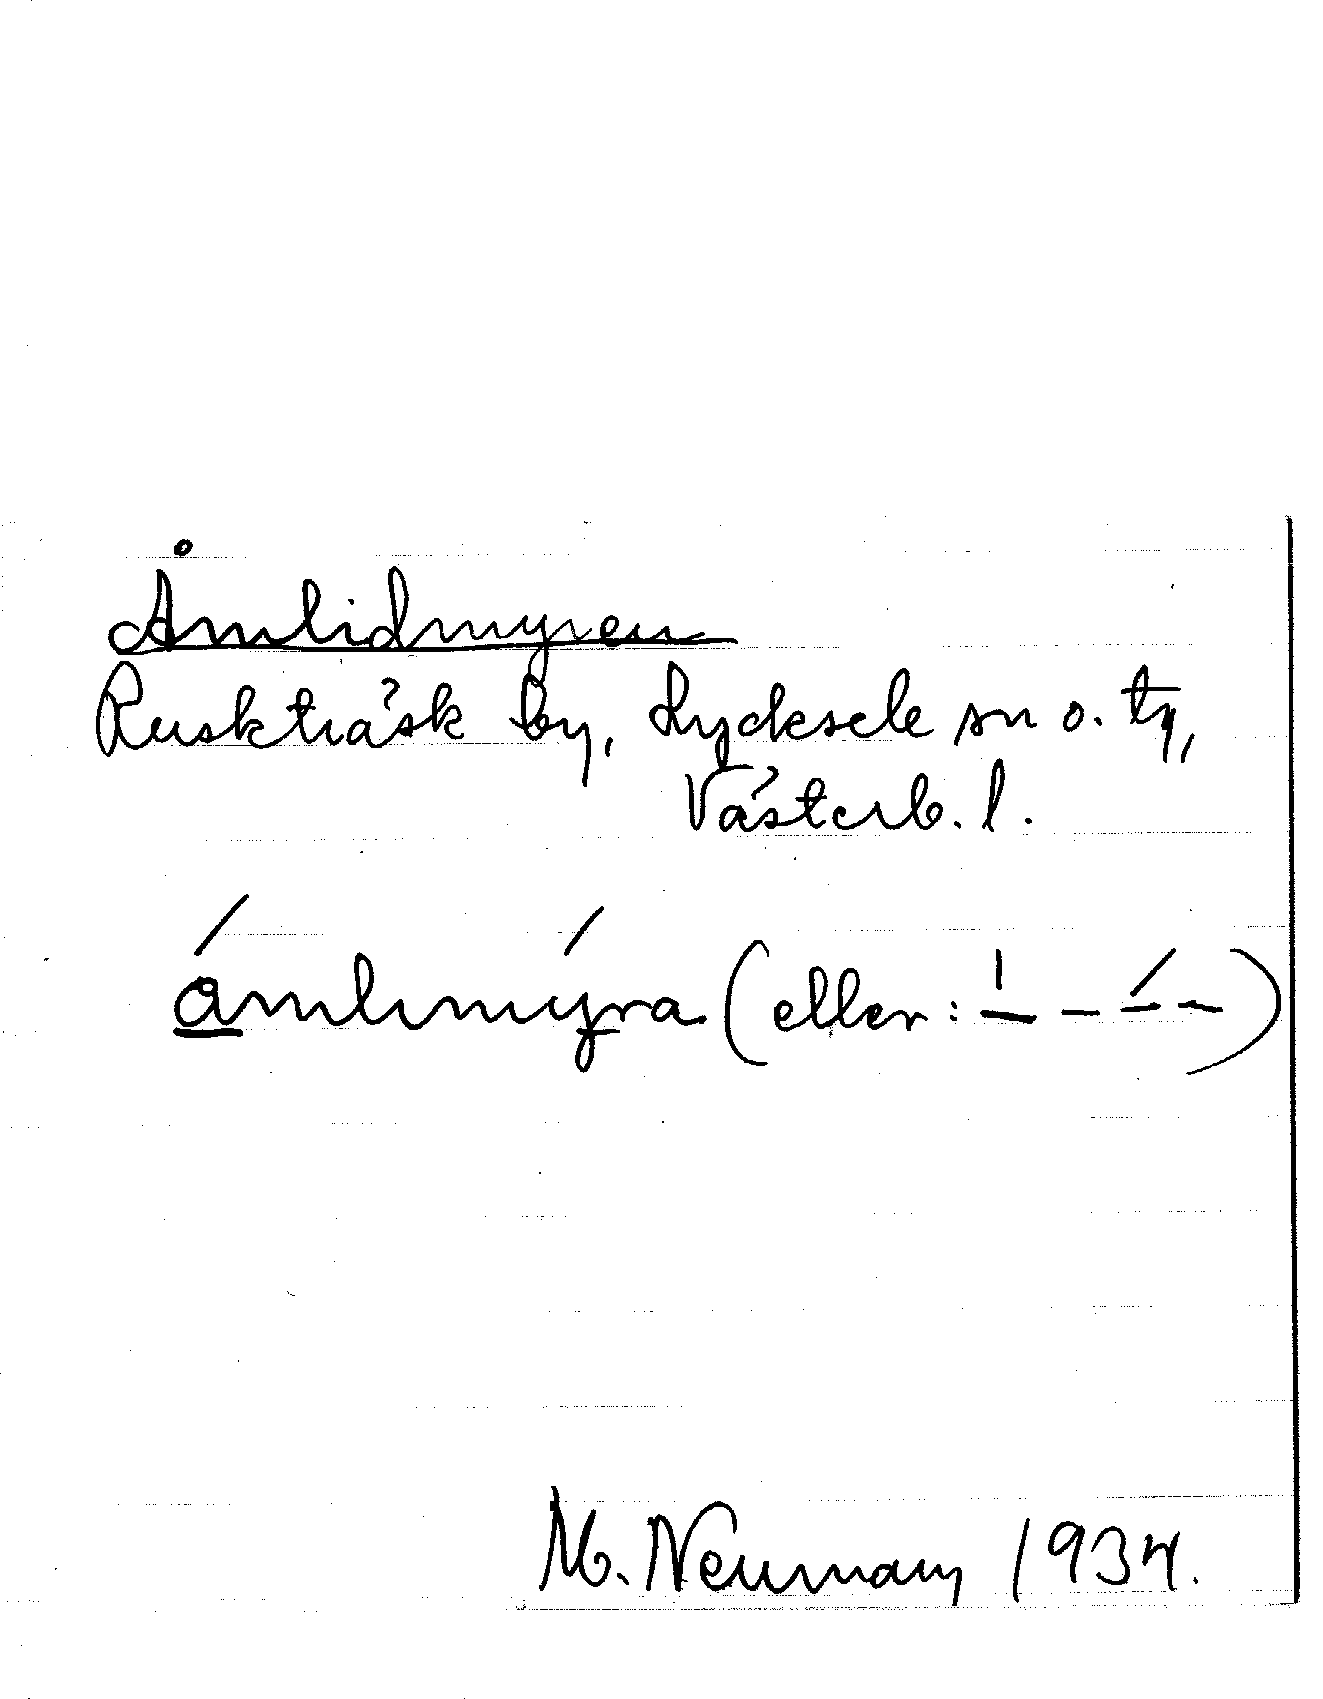 Åmlidmyren
Ruskträsk by, Lycksele sn o. tg,
Västerb. l.
åmlımy̆ra (eller: ˈ– – ´– –)
M. Neuman 1934.